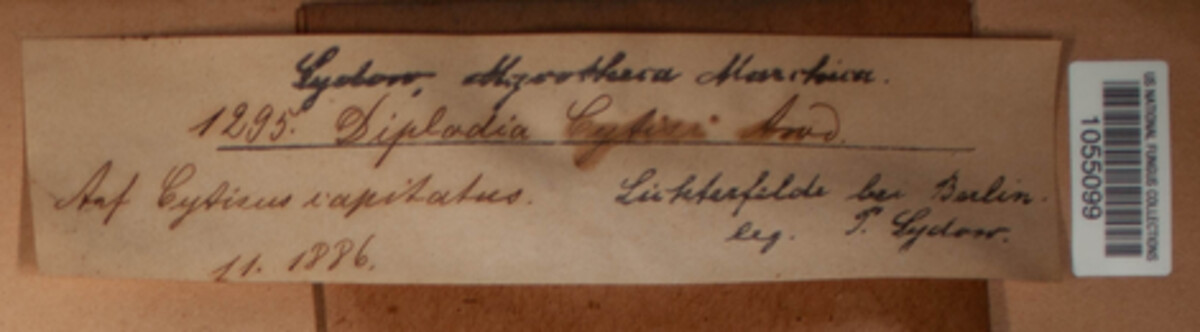 Sydow, Mycotheca Marchica.
1295. Diplodia Cytisi Awd.
Auf Cytisus capitatus. Lichterfelde bei Berlin.
leg. P. Sydow.
11. 1886.
US NATIONAL FUNGUS COLLECTIONS
1055099